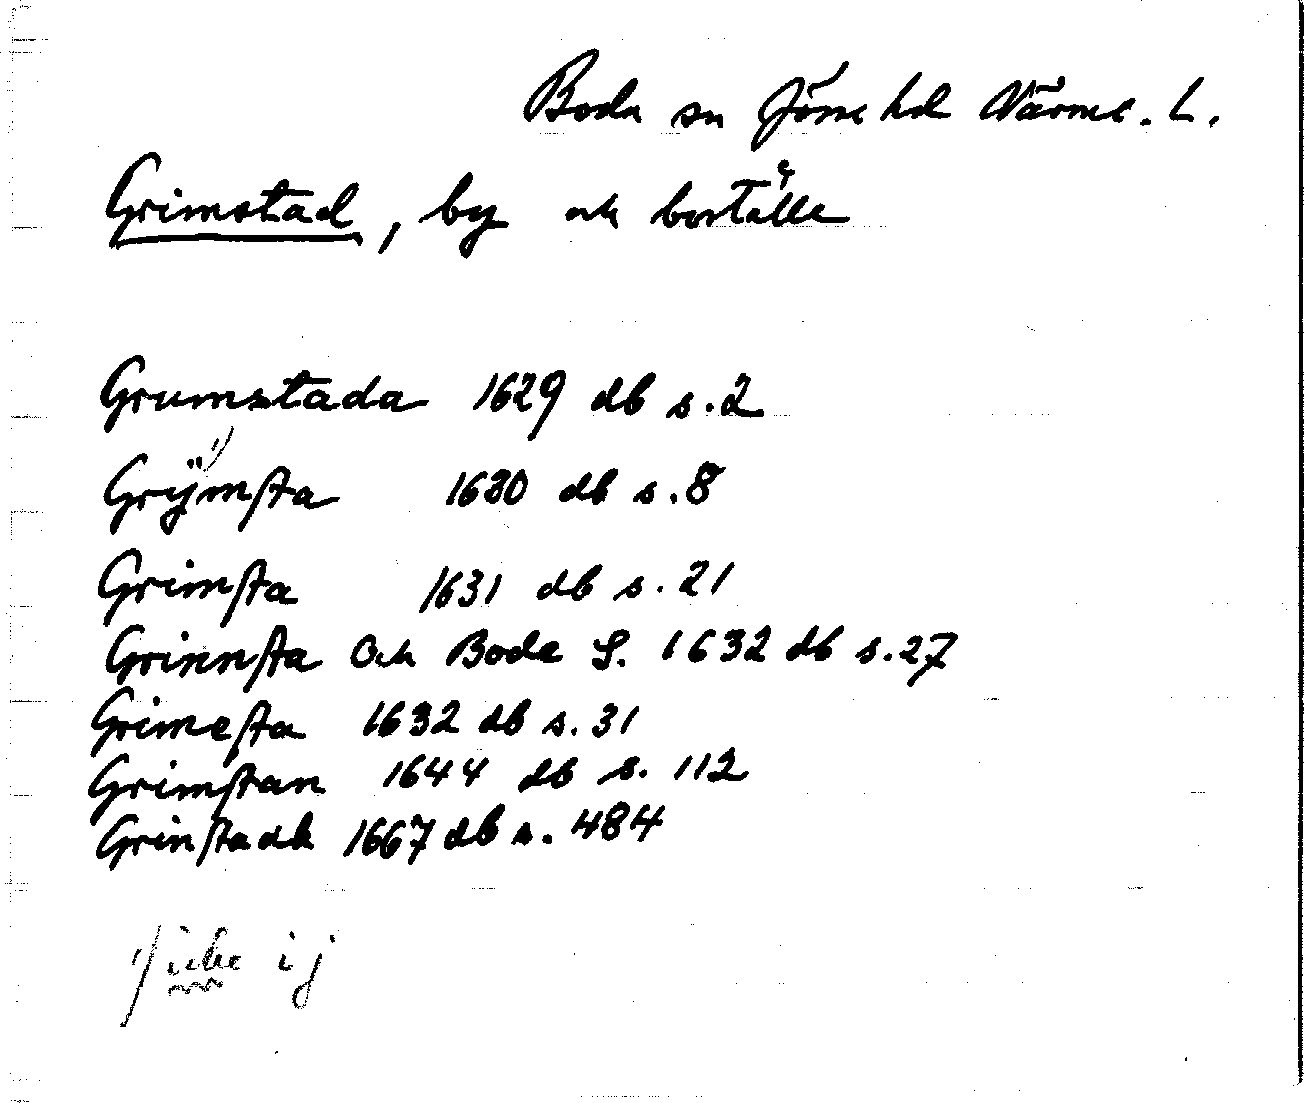 Boda sn Jösse hd Värml. L.
Grimstad, by och boställe
Grumstada 1629 db s. 2
Grÿmsta 1) 1630 db s. 8
Grimsta 1631 db s. 21
Grinnsta Och Boda S. 1632 db s. 27
Grimesta 1632 db s. 31
Grimstan 1644 db s. 112
Grinstadh 1667 db s. 484
1) icke ij